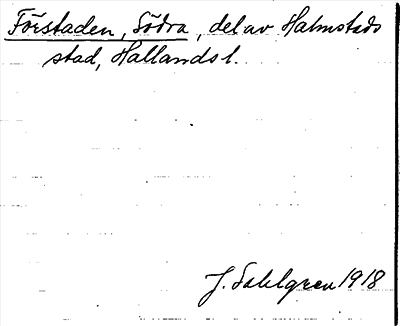 Förstaden, Södra, del av Halmstads
stad, Hallands l.
J. Sahlgren 1918